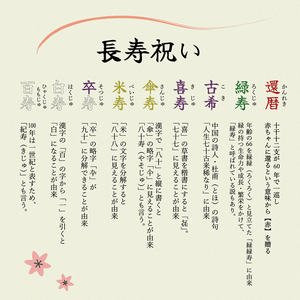 長寿祝い
還暦
かんれき
十干十二支が60年で一巡し
赤ちゃんに還るという意味から【赤】を贈る
緑寿
ろくじゅ
年齢の66を緑緑(ろくろく)と見立てた「緑緑寿」に由来
緑の持つ生命力や成長・繁栄をかけて、
「緑寿」と呼ばれている説もあり。
古希
こき
中国の詩人・杜甫(とほ)の詩句
「人生七十古来稀なり」に由来
喜寿
きじゅ
「喜」の草書を楷書にすると「㐂」。
「七十七」に見えることが由来
傘寿
さんじゅ
漢字で「八十」と縦に書くと
「傘」の略字「仐」に見えることが由来
「八十寿(やそじゅ)」とも言う。
米寿
べいじゅ
「米」の文字を分解すると
「八十八」に見えることが由来
卒寿
そつじゅ
「卒」の略字「卆」が
「九十」に分解できることが由来
白寿
はくじゅ
漢字の「百」の字から「一」を引くと
「白」になることが由来
百寿
ひゃくじゅ
ももじゅ
100年は一世紀と表すため、
「紀寿(きじゅ)」とも言う。